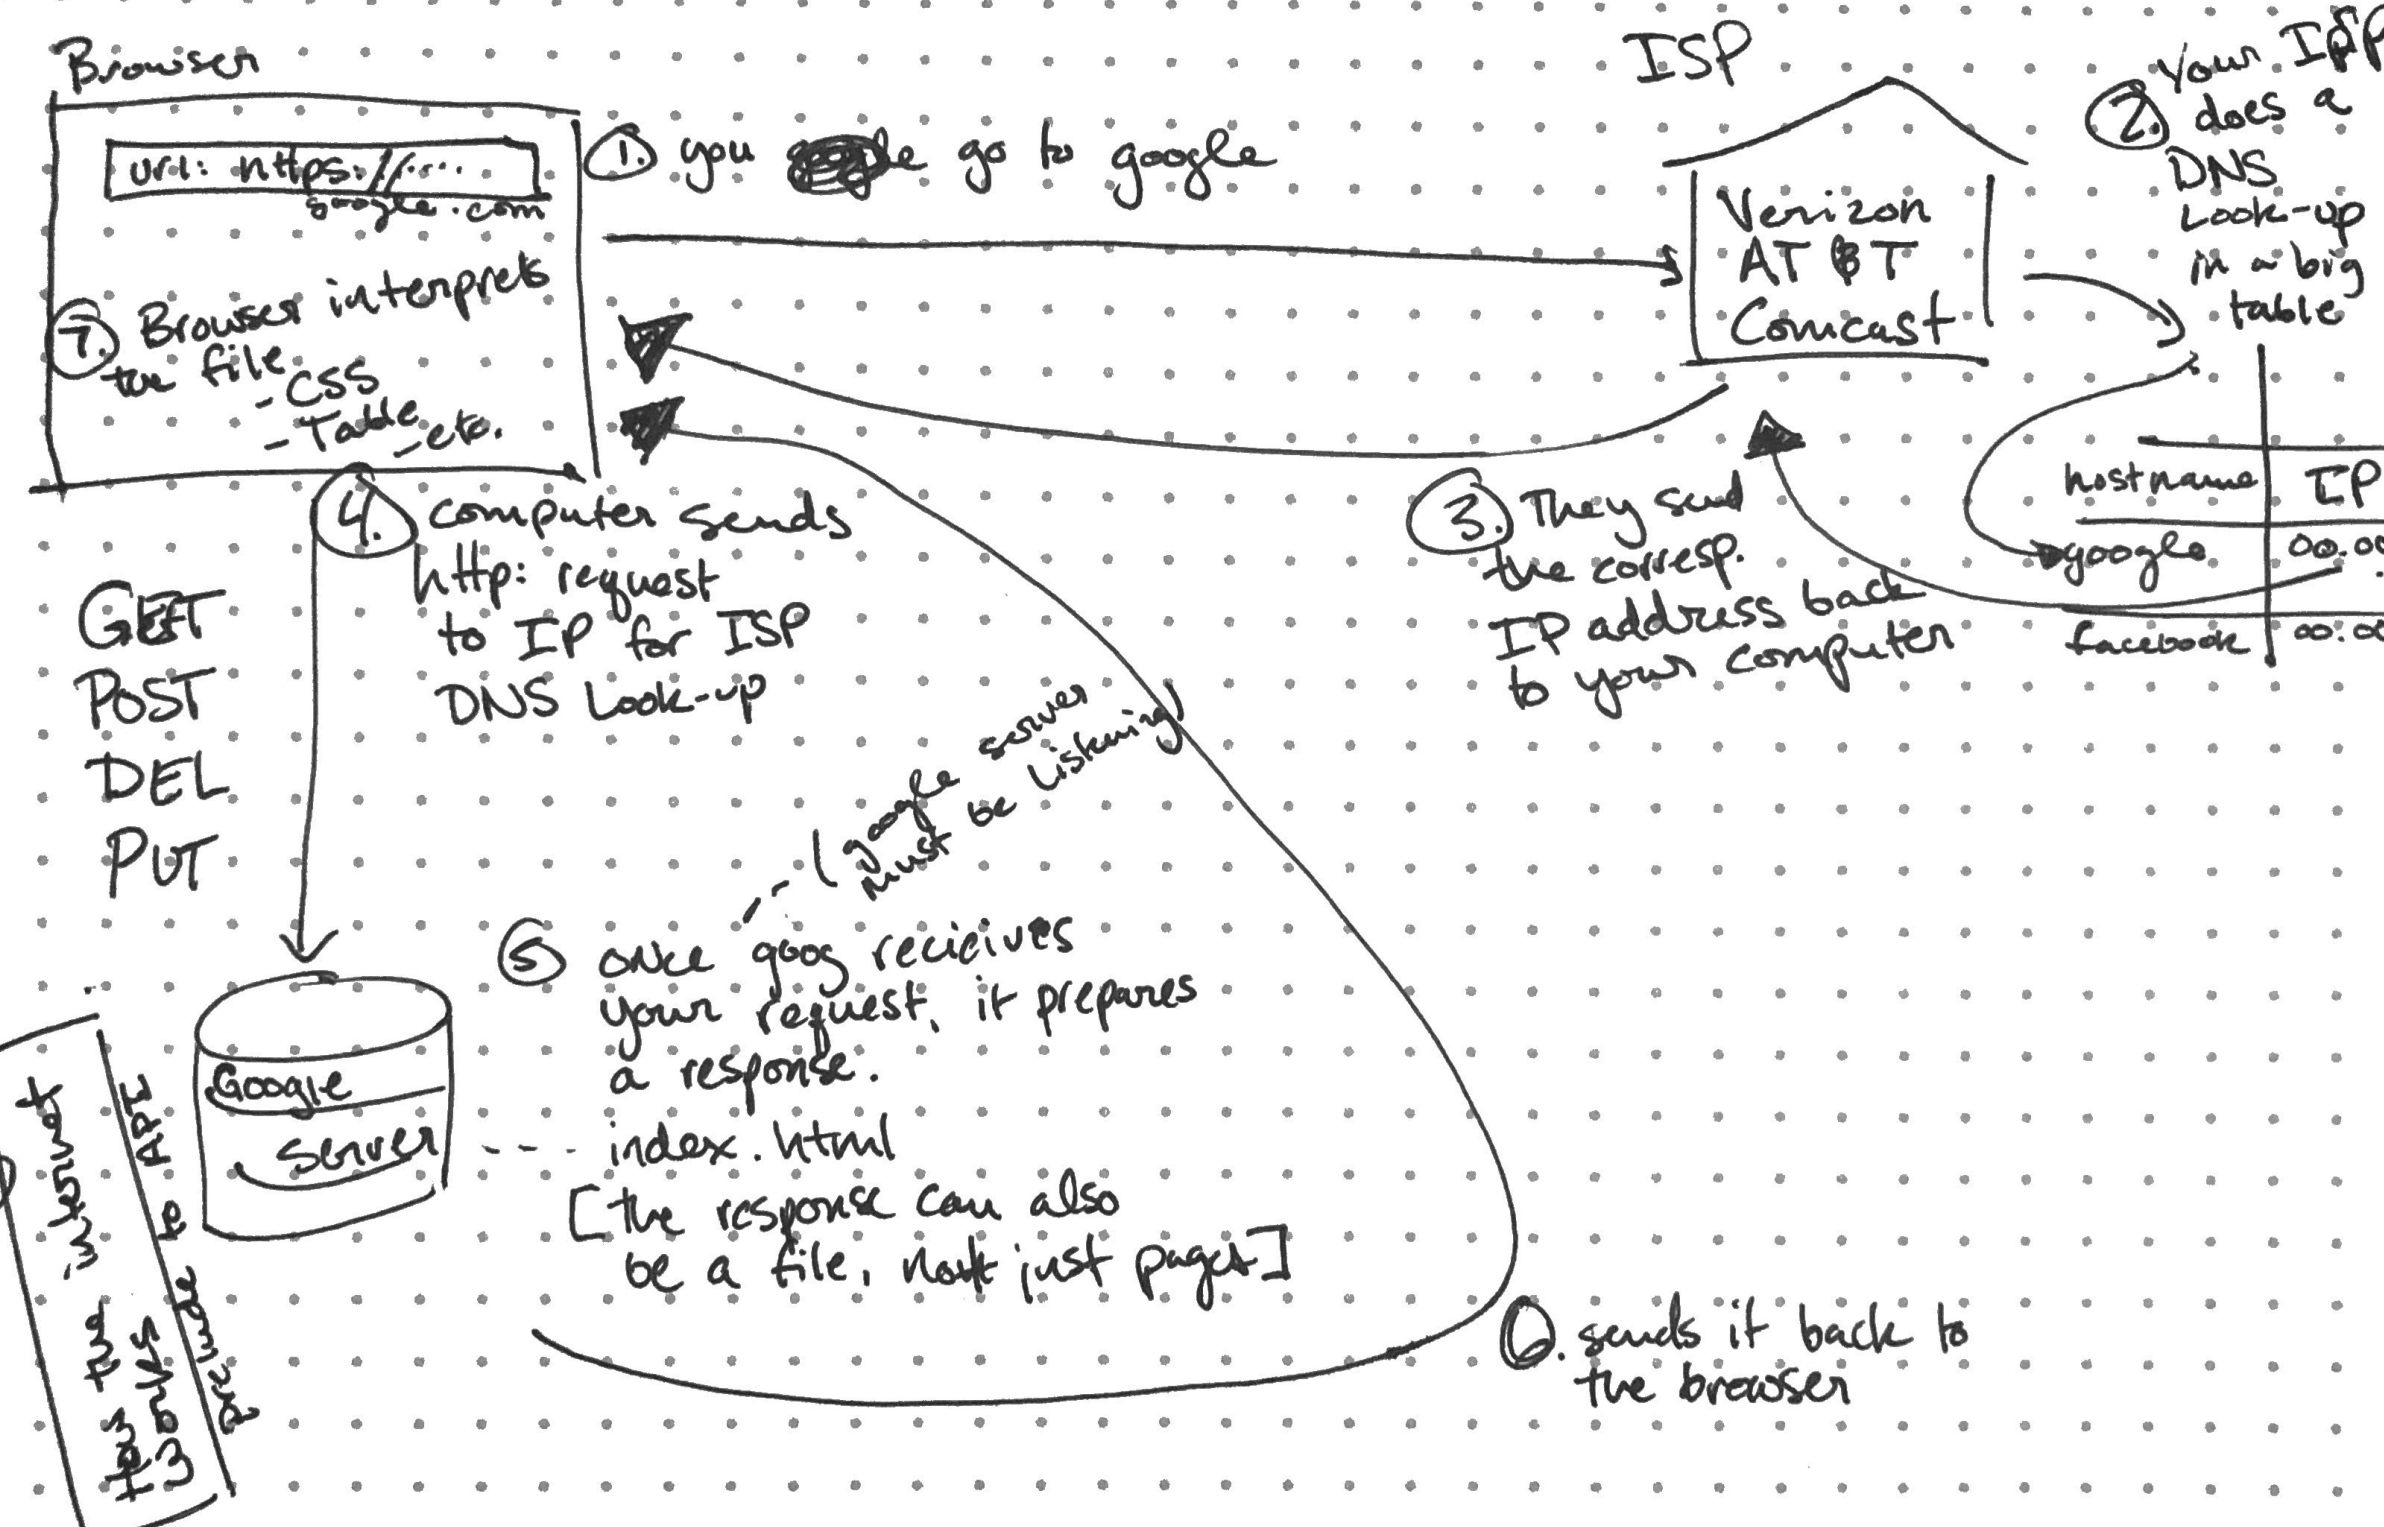 Browser
url: https://....
google.com
1. you go to google
ISP
Verizon
AT&T
Comcast
2. Your ISP
does a
DNS
Look-up
in a big
table
hostname IP
google 00.00
facebook 00.00
3. They send
the corresp.
IP address back
to your computer
4. computer sends
http: request
to IP for ISP
DNS Look-up
GET
POST
DEL
PUT
Google
Server
(google server
must be listening)
5 once goog recieives
your request, it prepares
a response.
--- index.html
[the response can also
be a file, not just page]
6. sends it back to
the browser
7. Browser interprets
the file
- CSS
- Table
- etc.
API